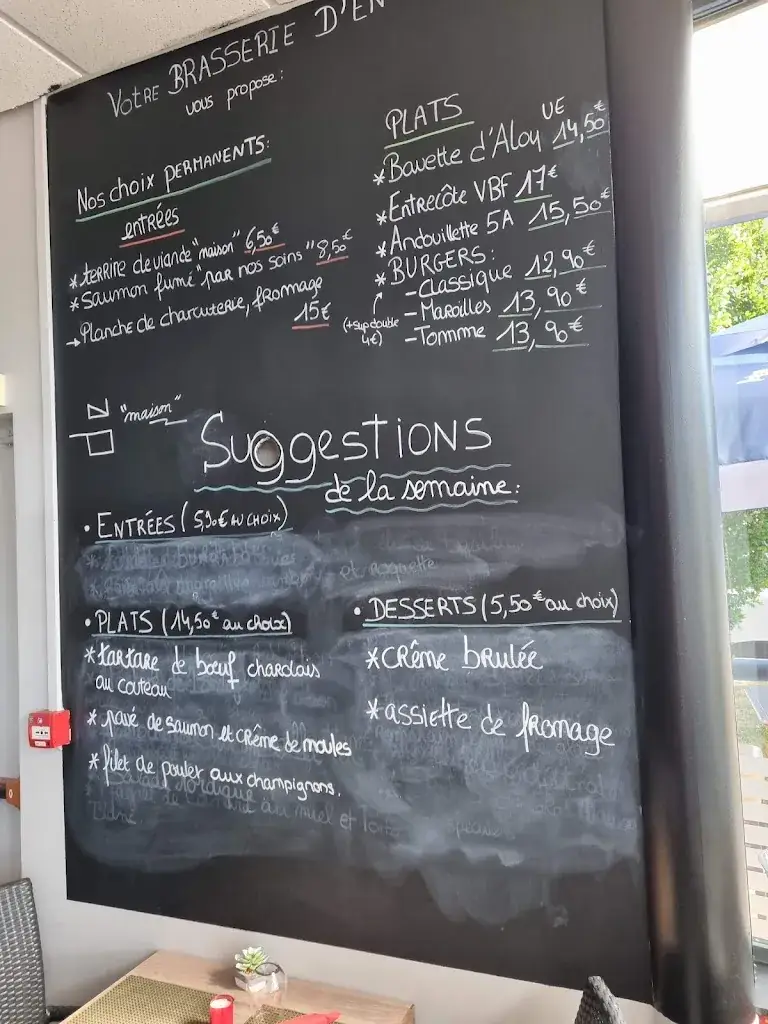 Votre BRASSERIE D'EN
vous propose:
Nos choix PERMANENTS:
entrées
* terrine de viande "maison" 6,50€
* Saumon fumé "par nos soins" 8,50€
→ Planche de charcuterie, fromage
15€
PLATS
* Bavette d'Aloy UE 14,50€
* Entrecôte VBF 17€
* Andouillette 5A 15,50€
* BURGERS:
- Classique 12,90€
- Maroilles 13,90€
(+sup double
4€)
- Tomme 13,90€
"maison"
SuggestIONS
de la semaine:
• ENTRÉES (5,90€ AU CHOIX)
et roquette
• PLATS (14,50€ au choix)
* tartare de bœuf charolais
au couteau
* pavé de saumon et crême de moules
* filet de poulet aux champignons.
au miel et
• DESSERTS (5,50€ au choix)
* CRême brulée
* assiette de fromage